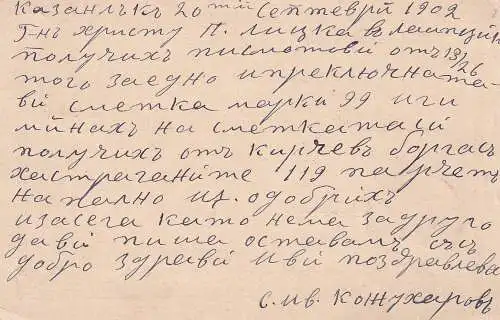 казанлъкъ 20тий септемврй 1902
Гнъ христу П. лицка в Лайпцигъ
получихъ писмотови отъ 13/26
того заедно и преключната-
ви сметка марки 99 и ги
минахъ на сметкатаси
получихъ отъ кирчевъ боргасъ
хастраганите 119 парчетъ
напално и ги одобрихъ
изасега като нема за друго
дави пиша оставамъ съсъ
добро здравй и ви поздравлева
с. ив. кожухаровъ